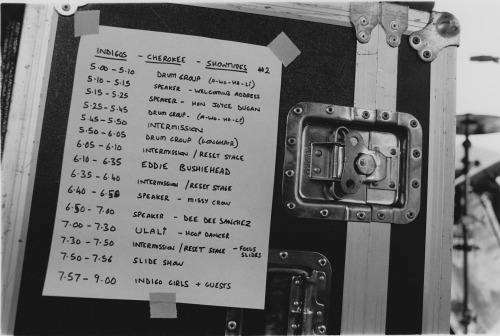 INDIGOS - CHEROKEE - SHOWTIMES #2
5.00 - 5.10 DRUM GROUP (A-WO-HO-LI)
5.10 - 5.15 SPEAKER - WELCOMING ADDRESS
5.15 - 5.25 SPEAKER - HON JOYCE DUGAN
5.25 - 5.45 DRUM GROUP - (A-WO-HO-LI)
5.45 - 5.50 INTERMISSION
5.50 - 6.05 DRUM GROUP (LONGHAIR)
6.05 - 6.10 INTERMISSION / RESET STAGE
6.10 - 6.35 EDDIE BUSHIEHEAD
6.35 - 6.40 INTERMISSION / RESET STAGE
6.40 - 6.50 SPEAKER - MISSY CROW
6.50 - 7.00 SPEAKER - DEE DEE SANCHEZ
7.00 - 7.30 ULALI - HOOP DANCER
7.30 - 7.50 INTERMISSION / RESET STAGE - FOCUS SLIDES
7.50 - 7.56 SLIDE SHOW
7.57 - 9.00 INDIGO GIRLS + GUESTS